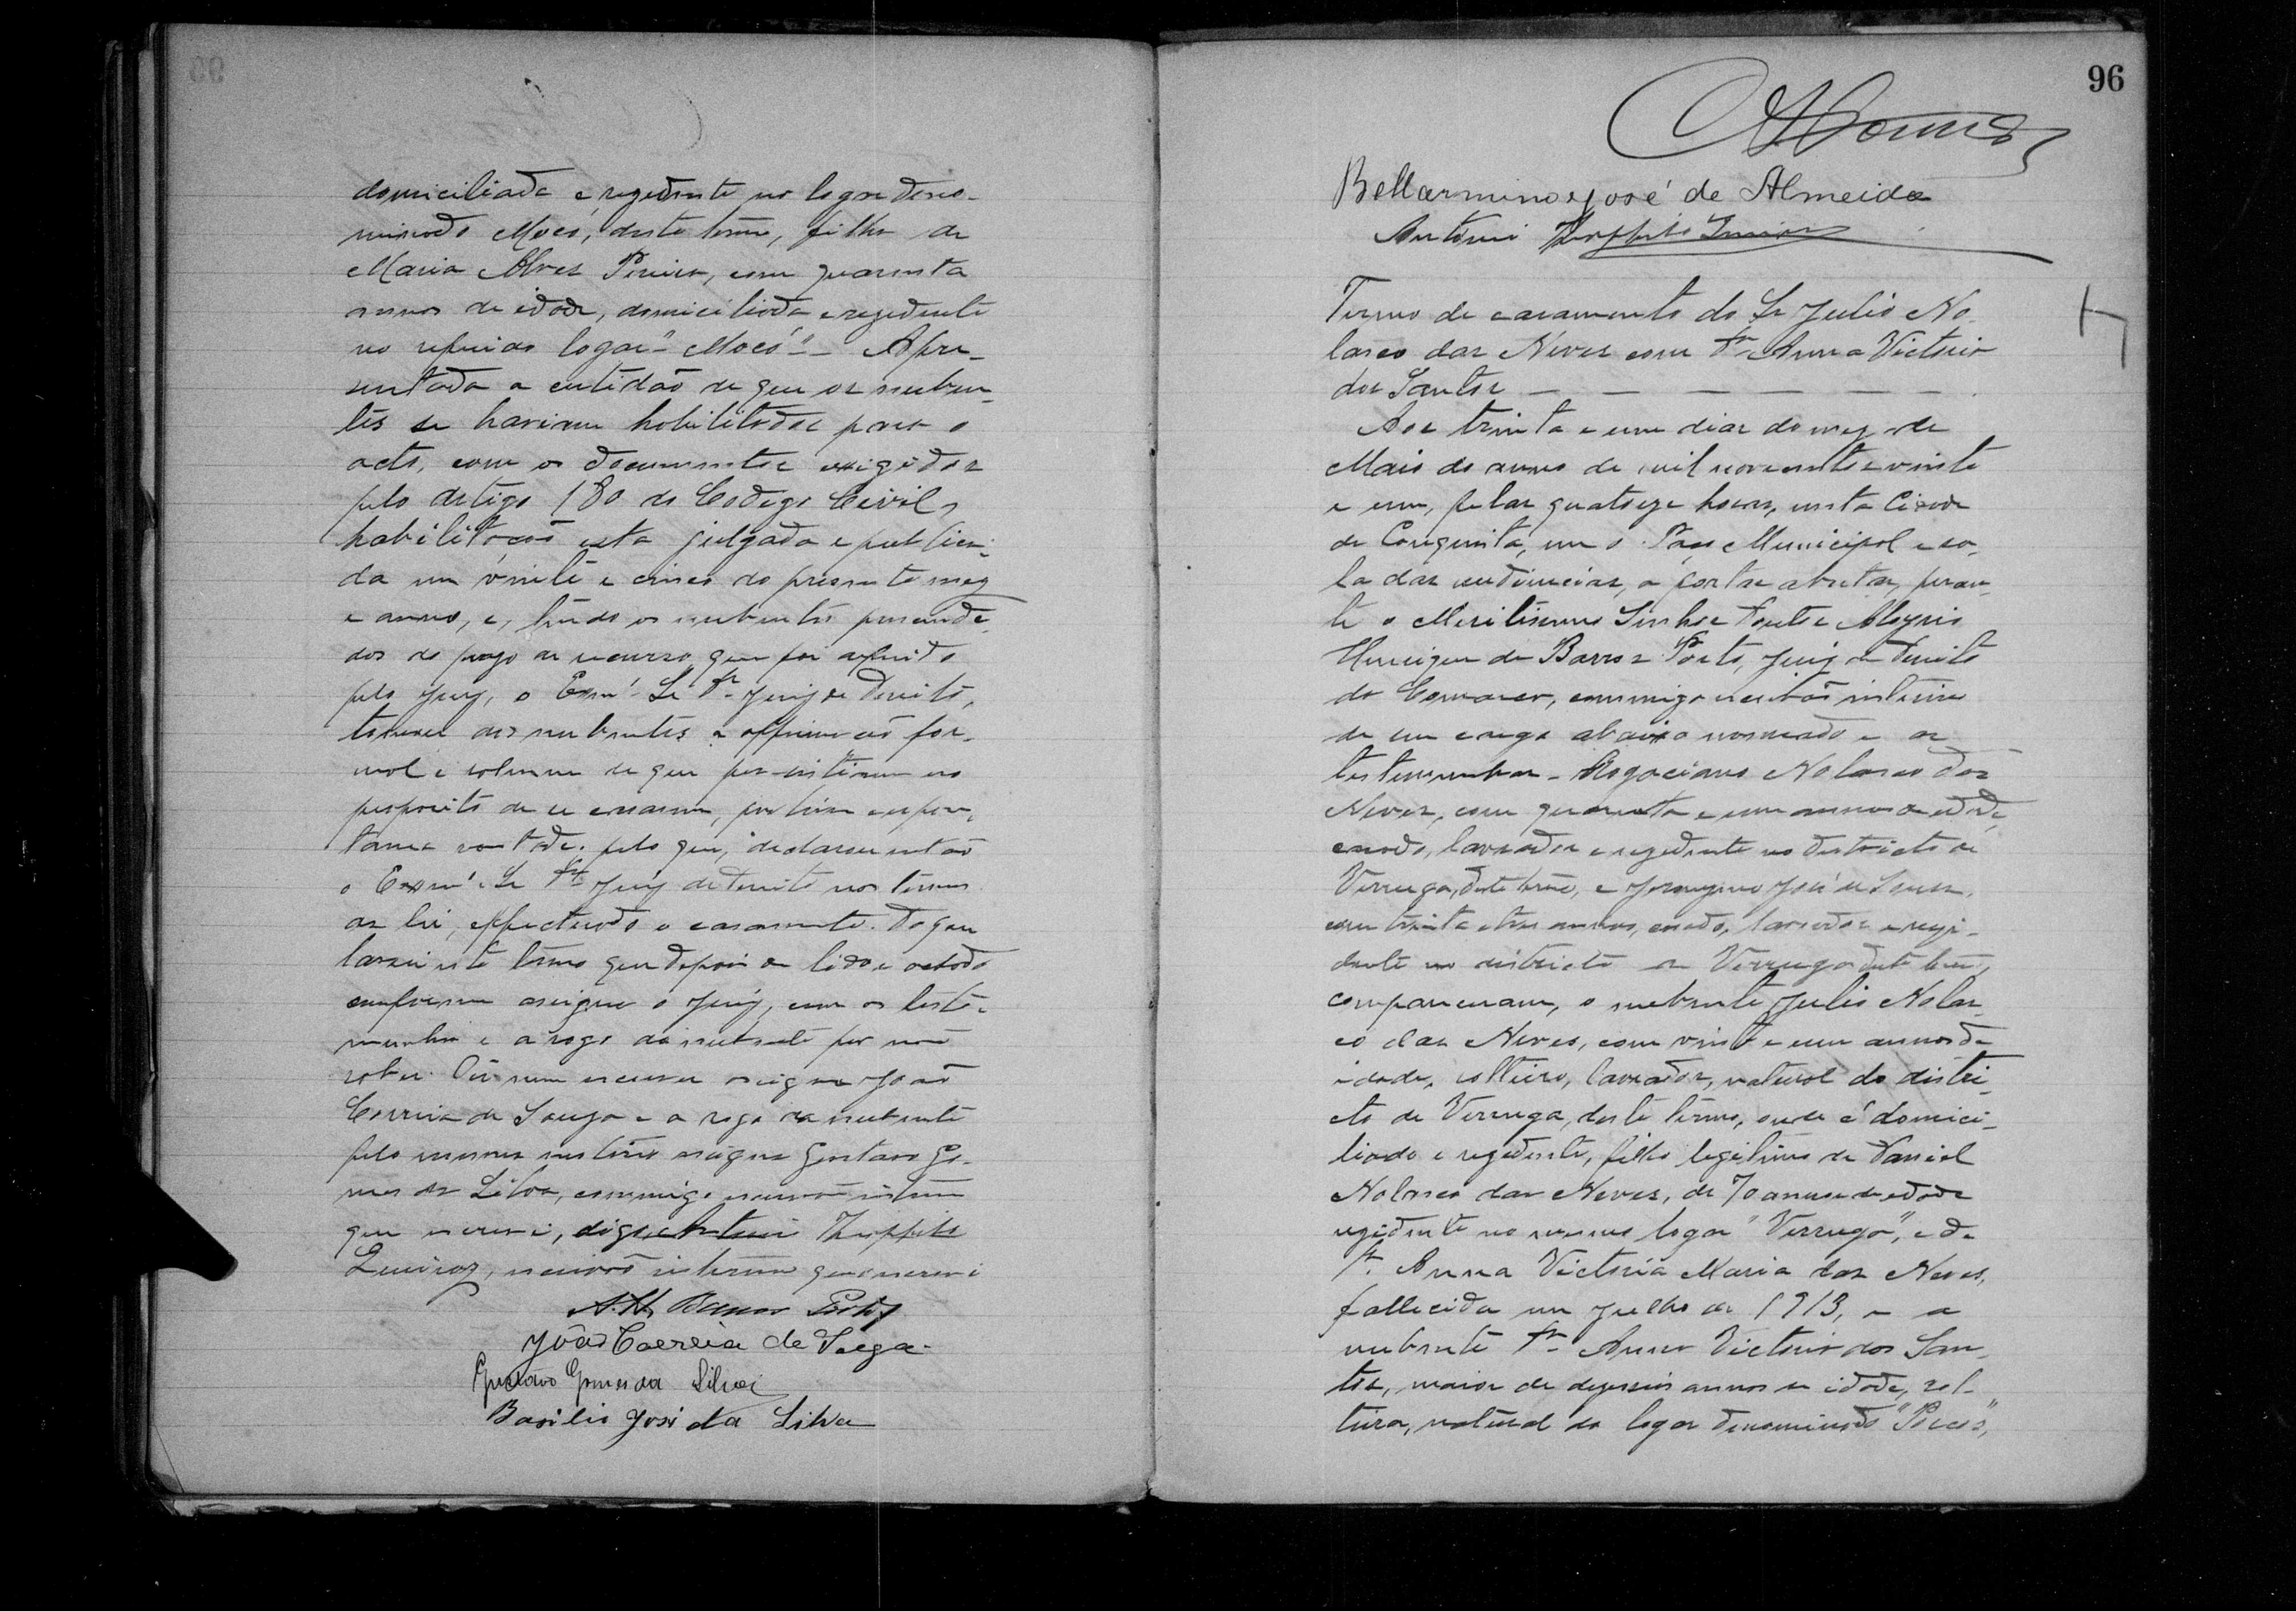 domiciliada e rezedente no logar deno-
minado Mocó, deste termo, filha de
Maria Alves Pereira, com quarenta
annos de idade, domiciliada e rezedente
no referido logar "Mocó" - Apre-
sentada a certidão de que os nuben-
tes se haviam habilitados para o
acto, com os documentos exigidos
pelo artigo 180 do Codigo Civil,
habilitação esta julgada e publica-
da em vinte e cinco do presente mez
e anno, e, tendo os nubentes
do prazo de recurso que foi
pelo Juiz, o Exmº Sr Dr Juiz de Direito,
tomou aos nubentes a affirmação for-
mal e solemne de que persistiam no
proposito de se casarem, por livre e espon-
tanea vontade. pelo que, declarou então
o Exmº Sr Dr Juiz de Direito nos termos
da lei, effectuado o casamento. Do que
lavrei este termo que depois de lido e achado
conforme assigna o Juiz, com as teste-
munhas e a rogo do nubente por não
saber ler nem escrever assigna João
Correia de Souza e a rogo da nubente
pelo mesmo motivo assigna Gustavo Go-
mes da Silva, commigo escrivão interino
que escrevi, digo, Antonio Theophilo
Queiroz, escrivão interino que escrevi
A. H. Barros Porto
João Correia de Souza
Gustavo Gomes da Silva
Basilio José da Silva
96
Bellarmino José de Almeida
Antonio Theophilo
Termo de casamento do Sr Julio No-
lasco das Neves com Dª Anna Victoria
dos Santos
Aos trinta e um dias do mez de
Maio do anno de mil novecentos e vinte
e um, pelas quatorze horas, nesta Cidade
de Conquista, em o Paço Municipal e sa-
la das audiencias, a portas abertas, peran-
te o Meritissimo Senhor Doutor Aloysio
Henrique de Barros Porto, Juiz de Direito
da Comarca, commigo escrivão interino
de seu cargo abaixo nomeado e as
testemunhas - Rogaciano Nolasco das
Neves, com quarenta e um annos de edade,
casado, lavrador e rezedente no districto de
Verruga, deste termo, e José de Souza,
com trinta e tres annos, casado, lavrador e rezi-
dente no districto de Verruga deste termo,
compareceram, o nubente Julio Nolas-
co das Neves, com vinte e um annos de
idade, solteiro, lavrador, natural do distri-
cto de Verruga, deste termo, onde é domici-
liado e rezedente, filho legitimo de Daniel
Nolasco das Neves, de 70 annos de edade
rezidente no mesmo logar "Verruga", e de
Dª Anna Victoria Maria das Neves,
fallecida em Julho de 1913, e a
nubente Dª Anna Victoria dos San-
tos, maior de dezeseis annos de idade, sol-
teira, natural do logar denominado